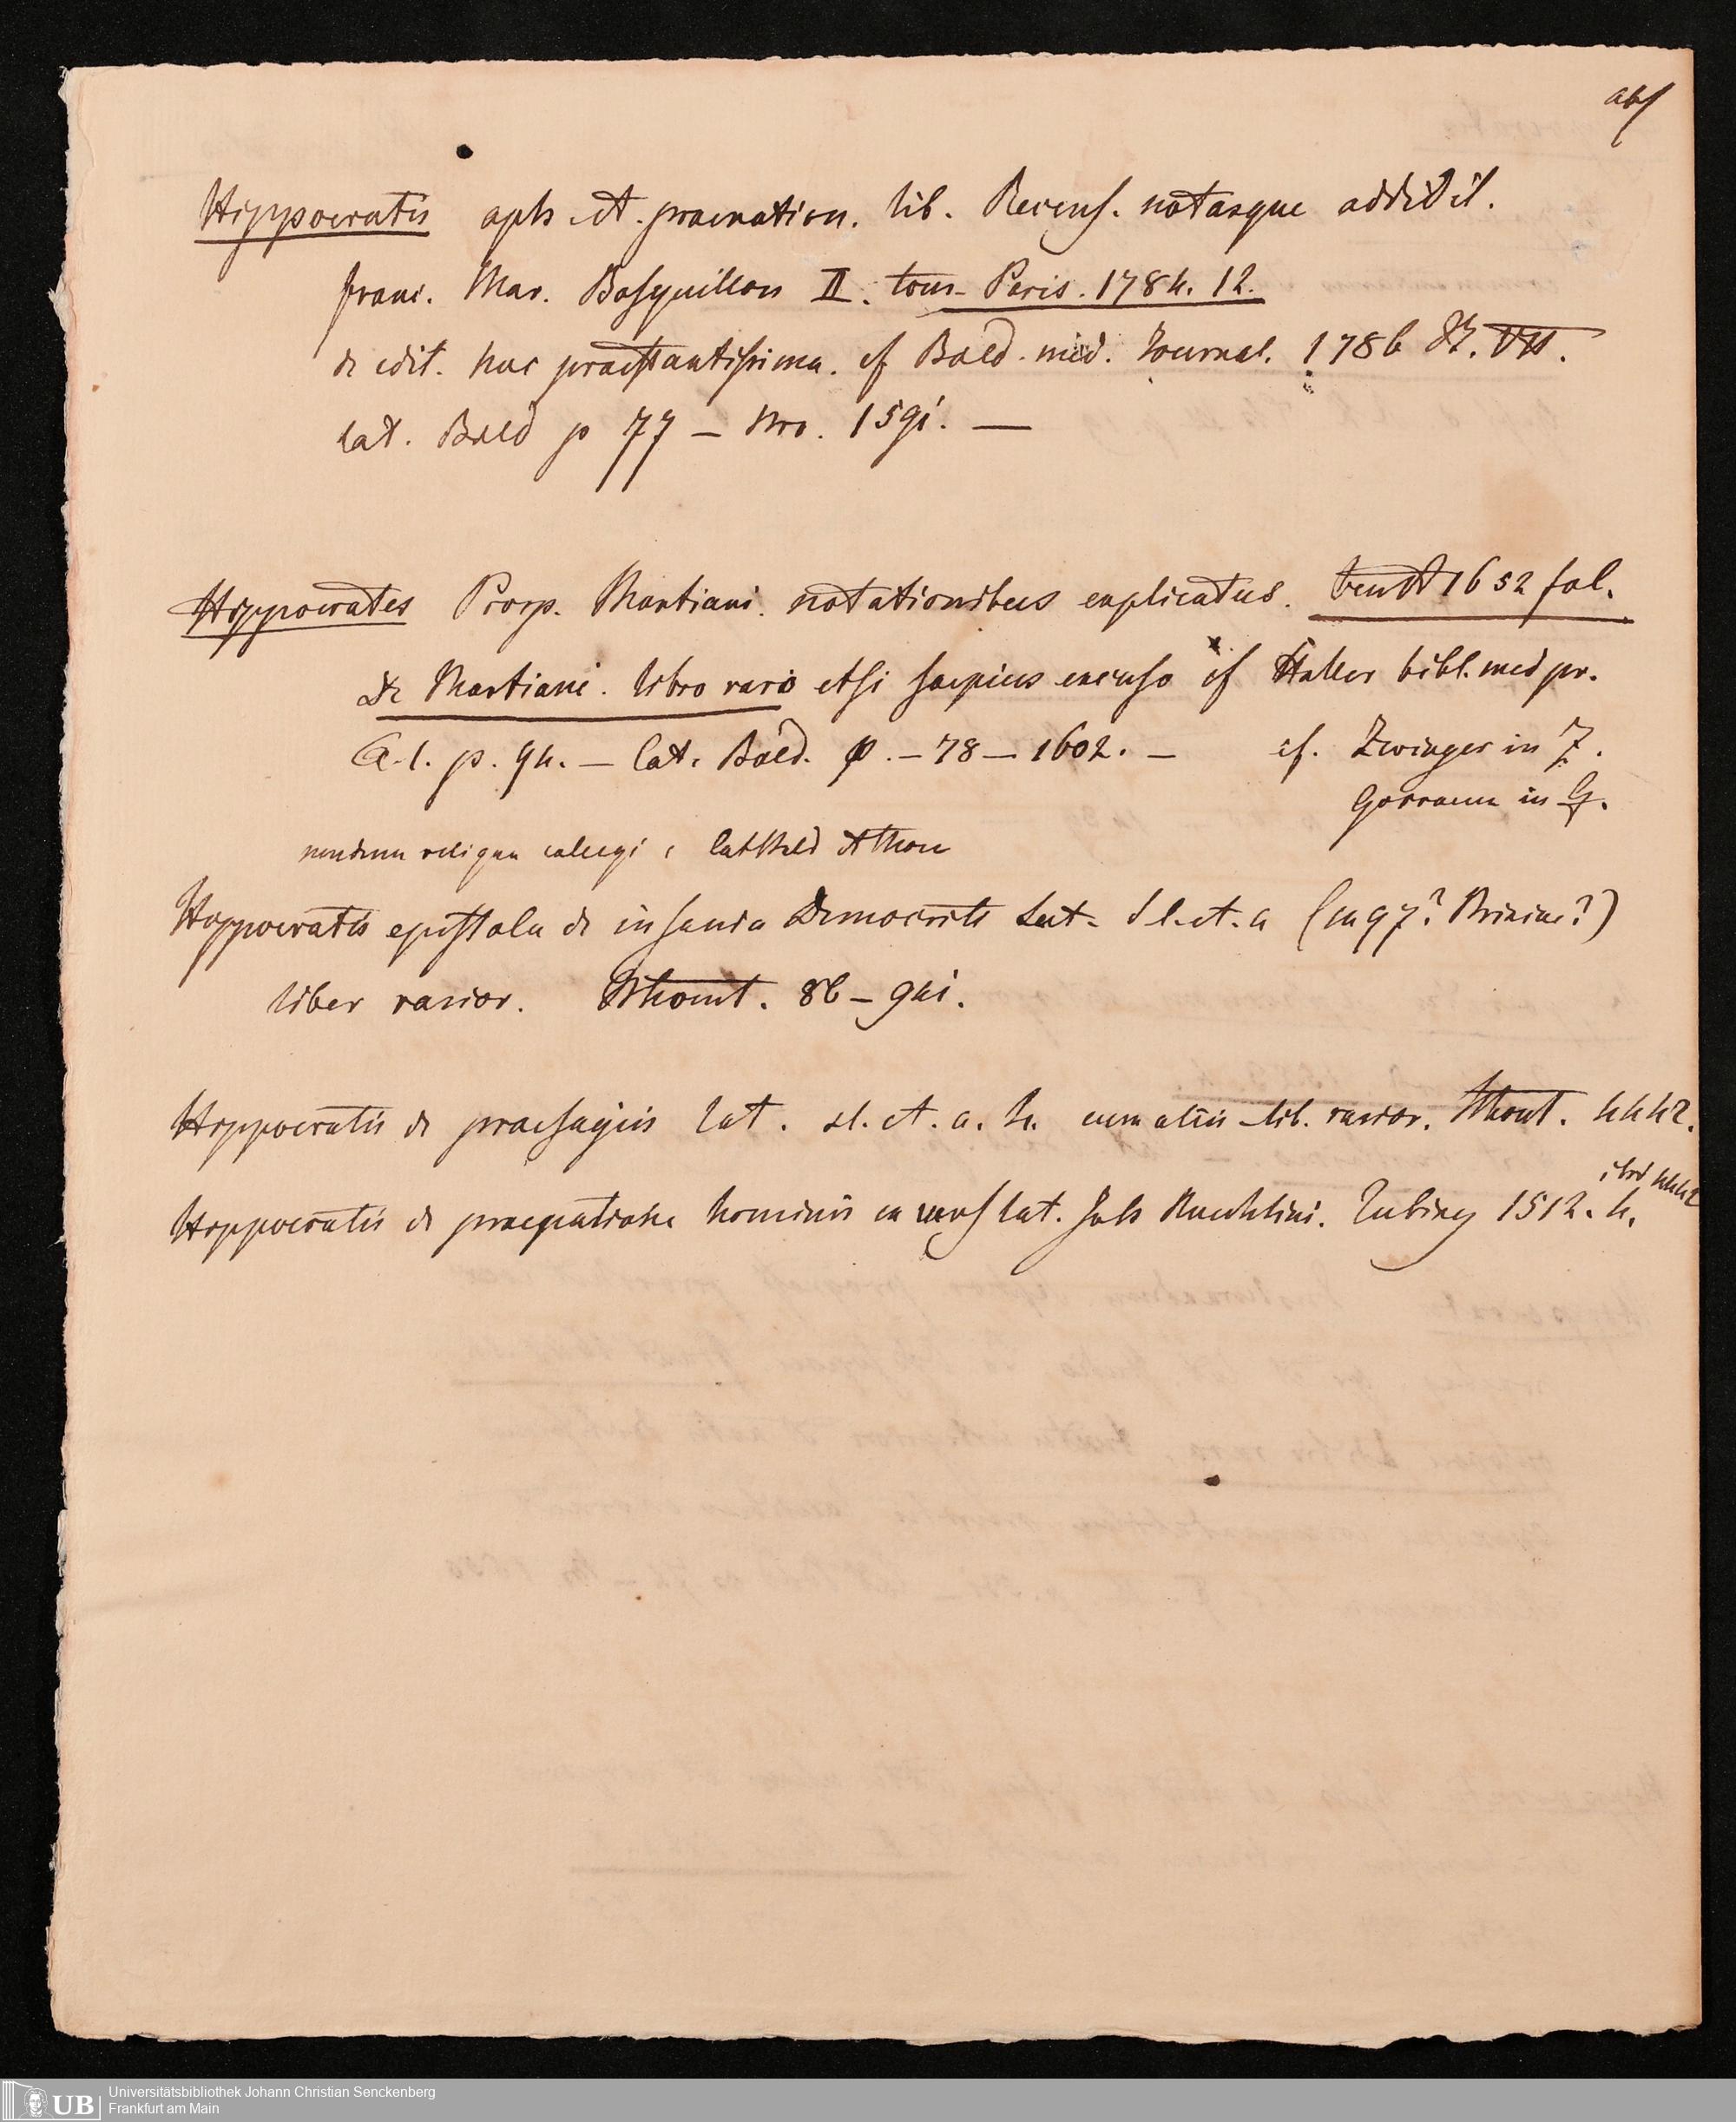 abs
Hippocratis aph. et. praenotion. lib. Recens. notasque addidit.
franc. Mar. Bosquillon II. tom. Paris. 1784. 12.
de edit. hac praestantissima. cf Bald. med. Journal. 1786 St. VII.
Cat. Bald p 77 – Nro. 1591. —
Hippocrates Prosp. Martiani. notationibus explicatus. Venet 1652 fol.
de Martiani. libro raro etsi saepius excuso cf Haller bibl. med pr.
p. 94. – Cat. Bald. p. – 78 – 1602. – cf. Zwinger in Z.
Gorraeum in G.
nondum reliqua collegi
Hippocratis epistola de insania Democriti Lat. S l. et. a
liber rarior. Thount. 86 – 941.
Hippocratis de praesagiis Lat. s l. et. a. 4. cum aliis lib. rarior. Thount. 4442.
ibid 4442
Hippocratis de praeparatione hominis ex vers lat. Joh Reuchlini. Tubing 1512. 4.
UB
Universitätsbibliothek Johann Christian Senckenberg
Frankfurt am Main